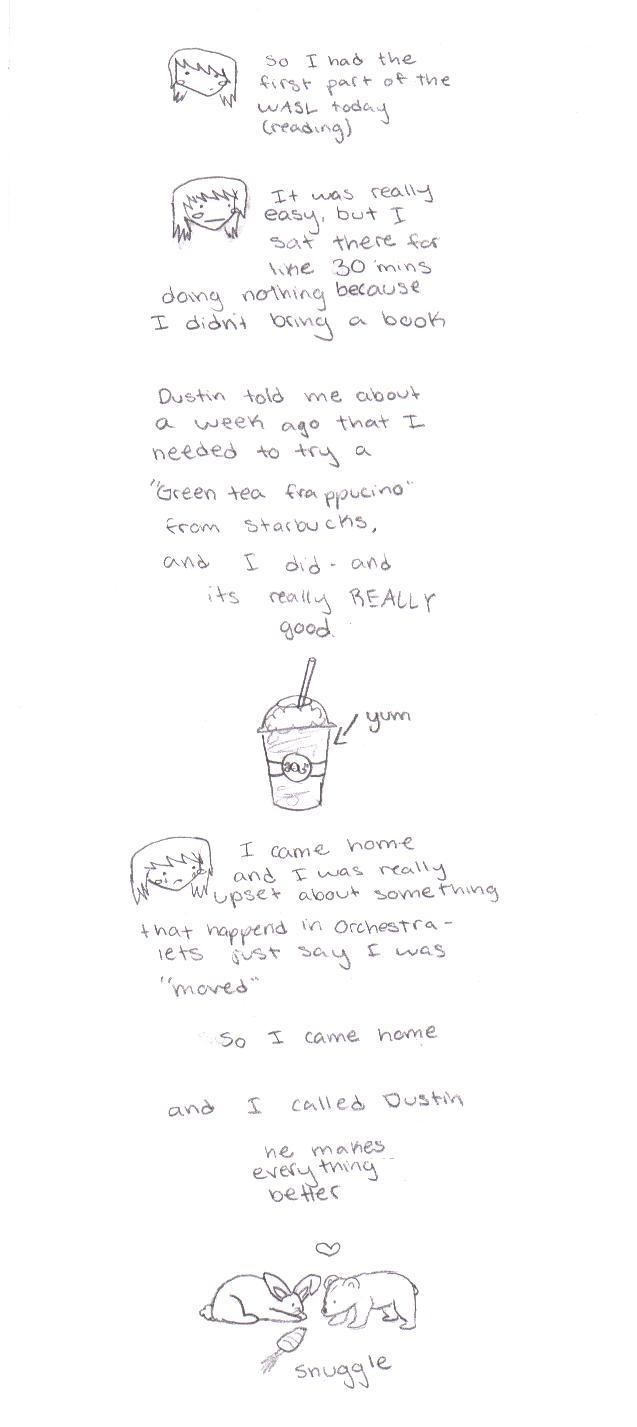 So I had the
first part of the
WASL today
(reading)
It was really
easy, but I
sat there for
like 30 mins
doing nothing because
I didn't bring a book
Dustin told me about
a week ago that I
needed to try a
"Green tea frappucino"
from Starbucks,
and I did - and
its really REALLY
good.
yum
I came home
and I was really
upset about something
that happend in Orchestra -
lets just say I was
"moved"
So I came home
and I called Dustin
he makes
everything
better
snuggle